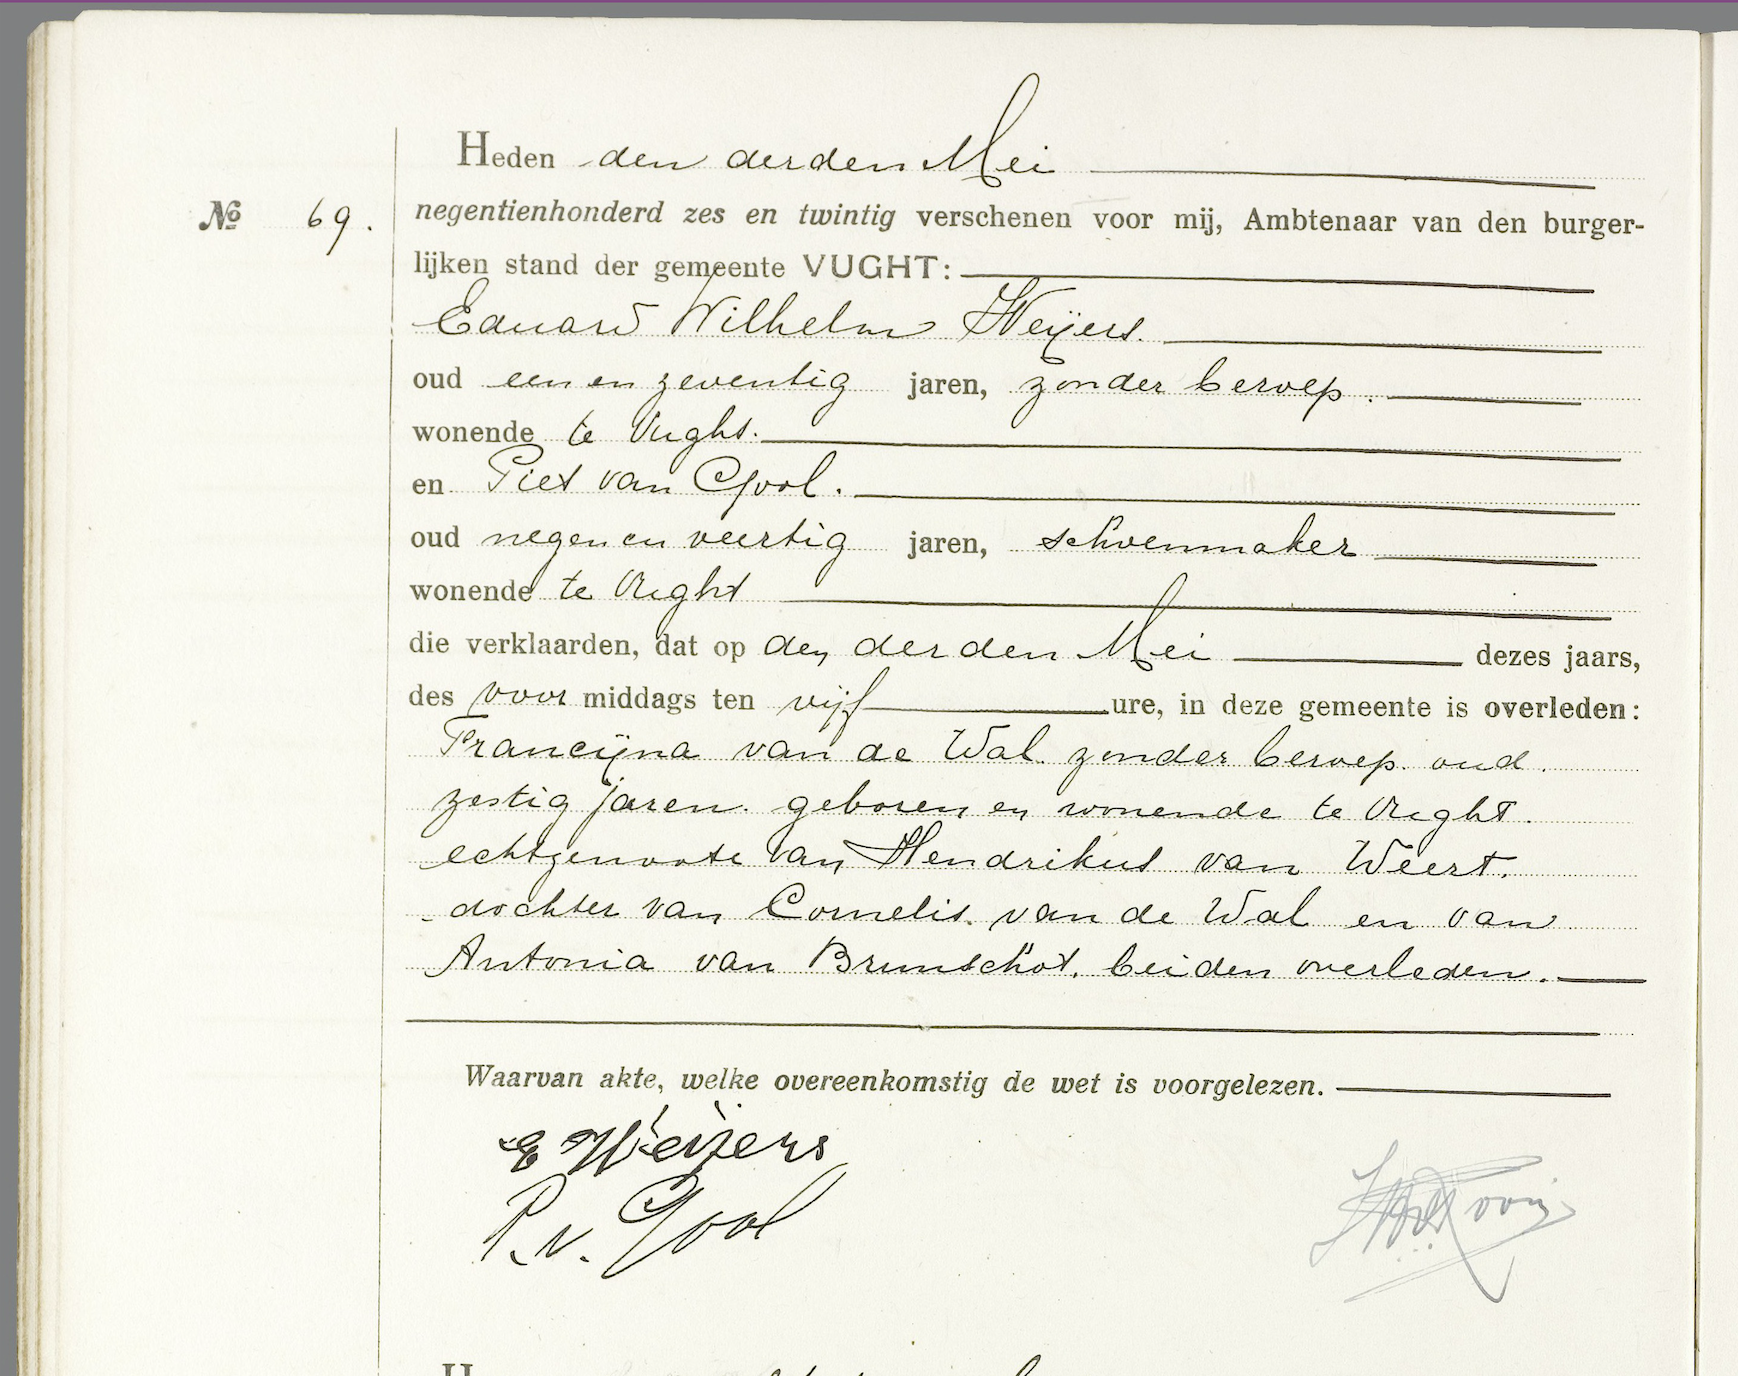 Heden den derden Mei
No 69. negentienhonderd zes en twintig verschenen voor mij, Ambtenaar van den burger-
lijken stand der gemeente VUGHT:
Eduard Wilhelm Weijers.
oud een en zeventig jaren, zonder beroep.
wonende te Vught.
en Piet van Gool.
oud negen en veertig jaren, schoenmaker
wonende te Vught
die verklaarden, dat op den derden Mei dezes jaars,
des voor middags ten vijf ure, in deze gemeente is overleden:
Francijna van de Wal. zonder beroep. oud.
zestig jaren. geboren en wonende te Vught.
echtgenoote van Hendrikus van Weert.
dochter van Cornelis. van de Wal en van
Antonia van Brunschot. beiden overleden.
Waarvan akte, welke overeenkomstig de wet is voorgelezen.
E Weijers
P. v. Gool